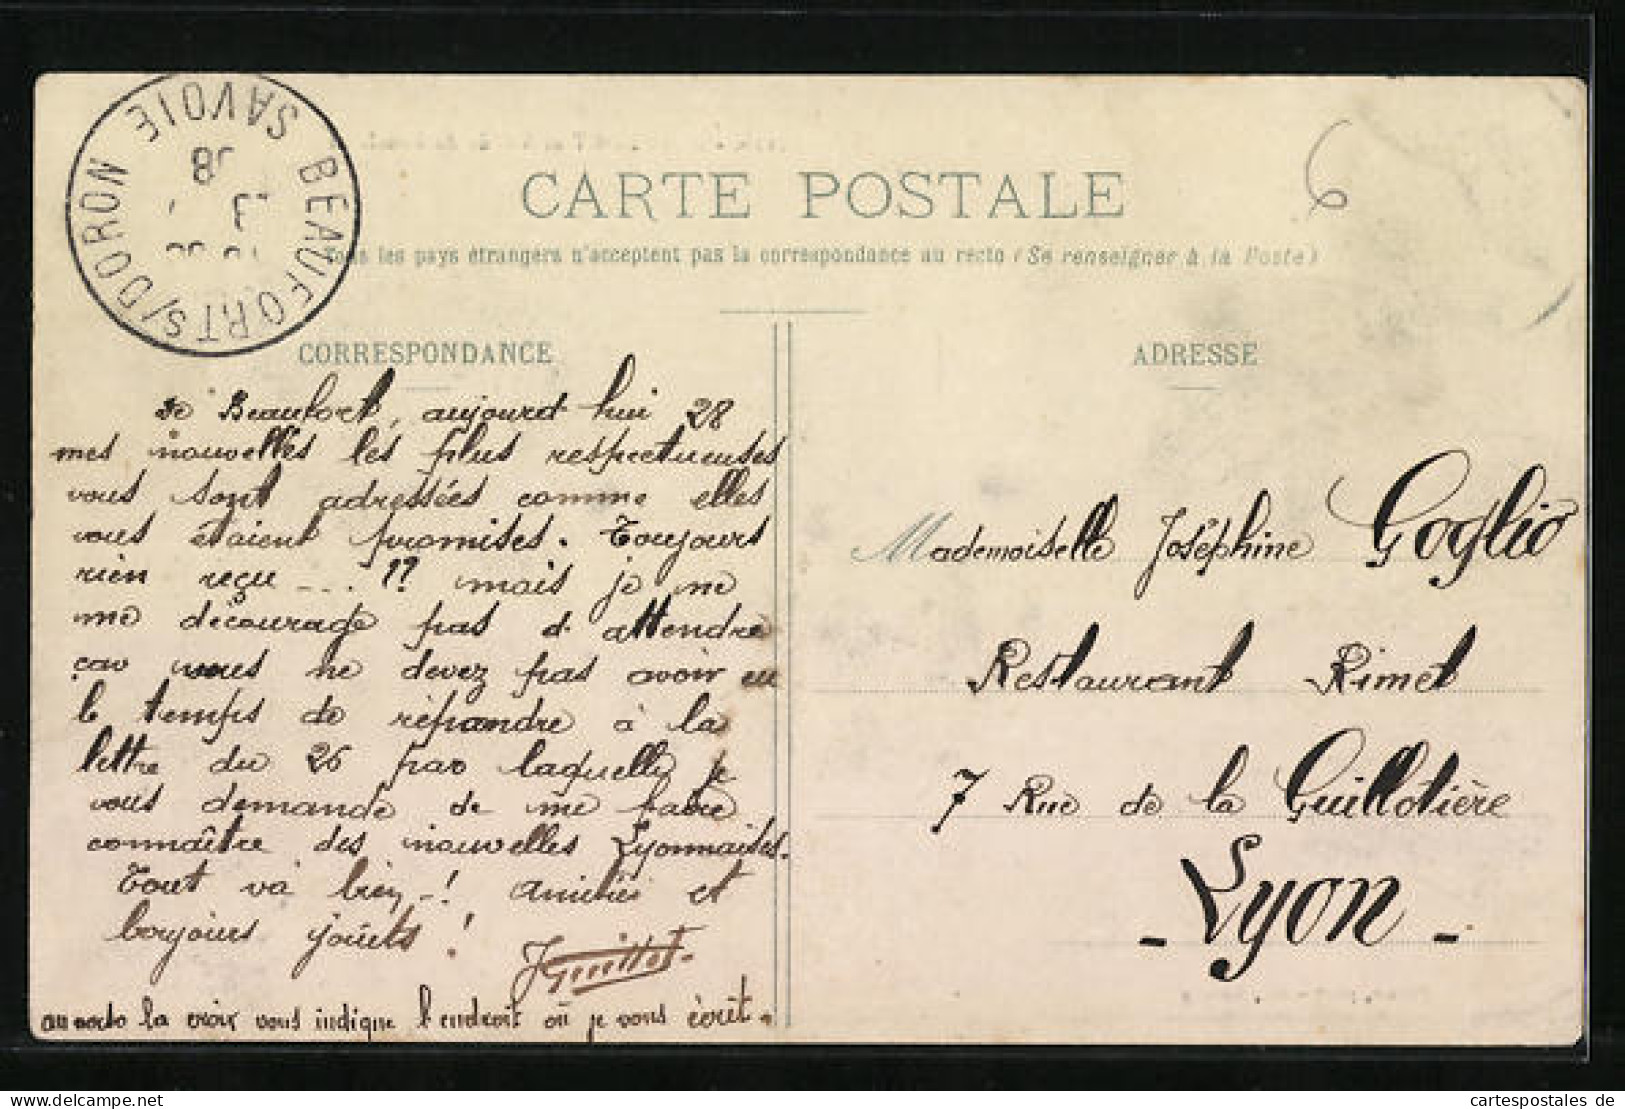 BEAUFORT S/DORON SAVOIE
08
CARTE POSTALE
Tous les pays étrangers n'acceptent pas la correspondance au recto (Se renseigner à la Poste)
CORRESPONDANCE
ADRESSE
de Beaufort, aujourd'hui 28
mes nouvelles les plus respectueuses
vous sont adressées comme elles
vous étaient promises. Toujours
rien reçu -... !! mais je ne
me décourage pas d'attendre
car vous ne devez pas avoir eu
le temps de répondre à la
lettre du 26 par laquelle je
vous demande de me faire
connaître des nouvelles Lyonnaises.
Tout va bien -! amitiés et
toujours !
JGuillot.
au recto la croix vous indique l'endroit où je vous écrit.
Mademoiselle Joséphine Goglio
Restaurant Rimet
7 Rue de la Guillotière
- Lyon -
6
hippostcard.com
cartespostales de